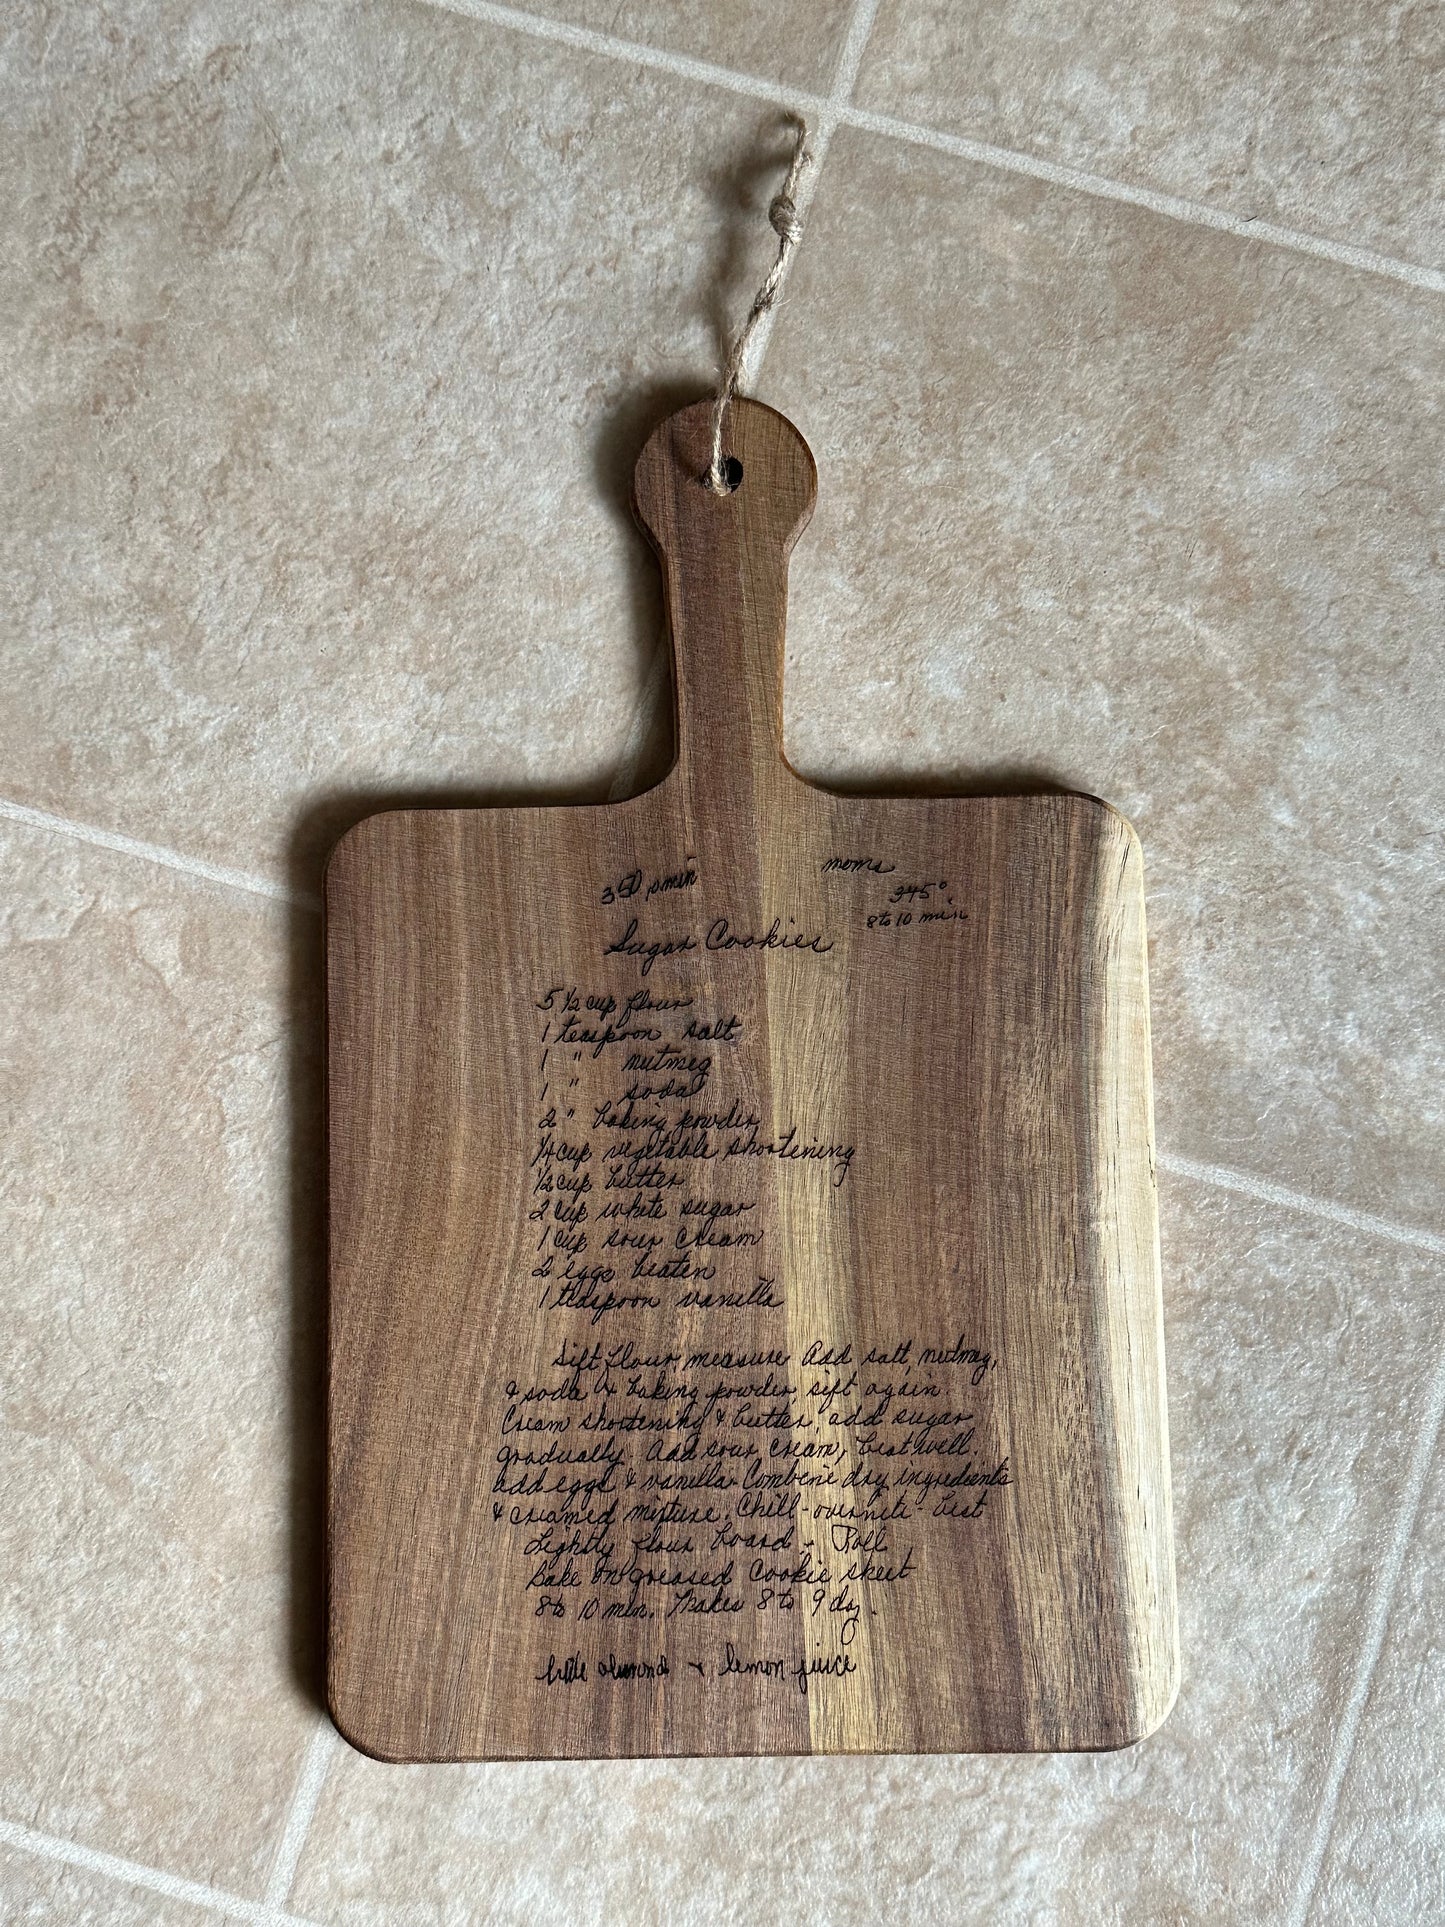 350 min
moms
345°
8 to 10 min
Sugar Cookies
5 1/2 cup flour
1 teaspoon salt
1 " nutmeg
1 " soda
2 " baking powder
1/4 cup vegetable shortening
1/2 cup butter
2 cup white sugar
1 cup sour cream
2 eggs beaten
1 teaspoon vanilla
Sift flour, measure Add salt, nutmeg,
& soda & baking powder, sift again.
Cream shortening & butter, add sugar
gradually. Add sour cream, beat well.
add eggs & vanilla. Combine dry ingredients
& creamed mixture. Chill - overnite - best
Lightly flour board - Roll
Bake on greased Cookie sheet
8 to 10 min. Makes 8 to 9 doz.
little almond & lemon juice